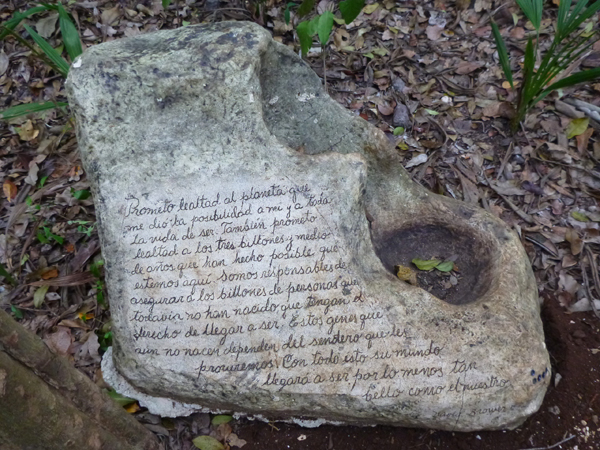 Prometo lealtad al planeta que
me dio la posibilidad a mi y a toda
la vida de ser. También prometo
lealtad a los tres billones y medio
de años que han hecho posible que
estemos aqui. Somos responsables de
asegurar a los billones de personas que
todavia no han nacido que tengan el
derecho de llegar a ser. Estos genes que
aún no nacen dependen del sendero que les
procuremos. Con todo esto su mundo
llegará a ser por lo menos tan
bello como el nuestro
Brower